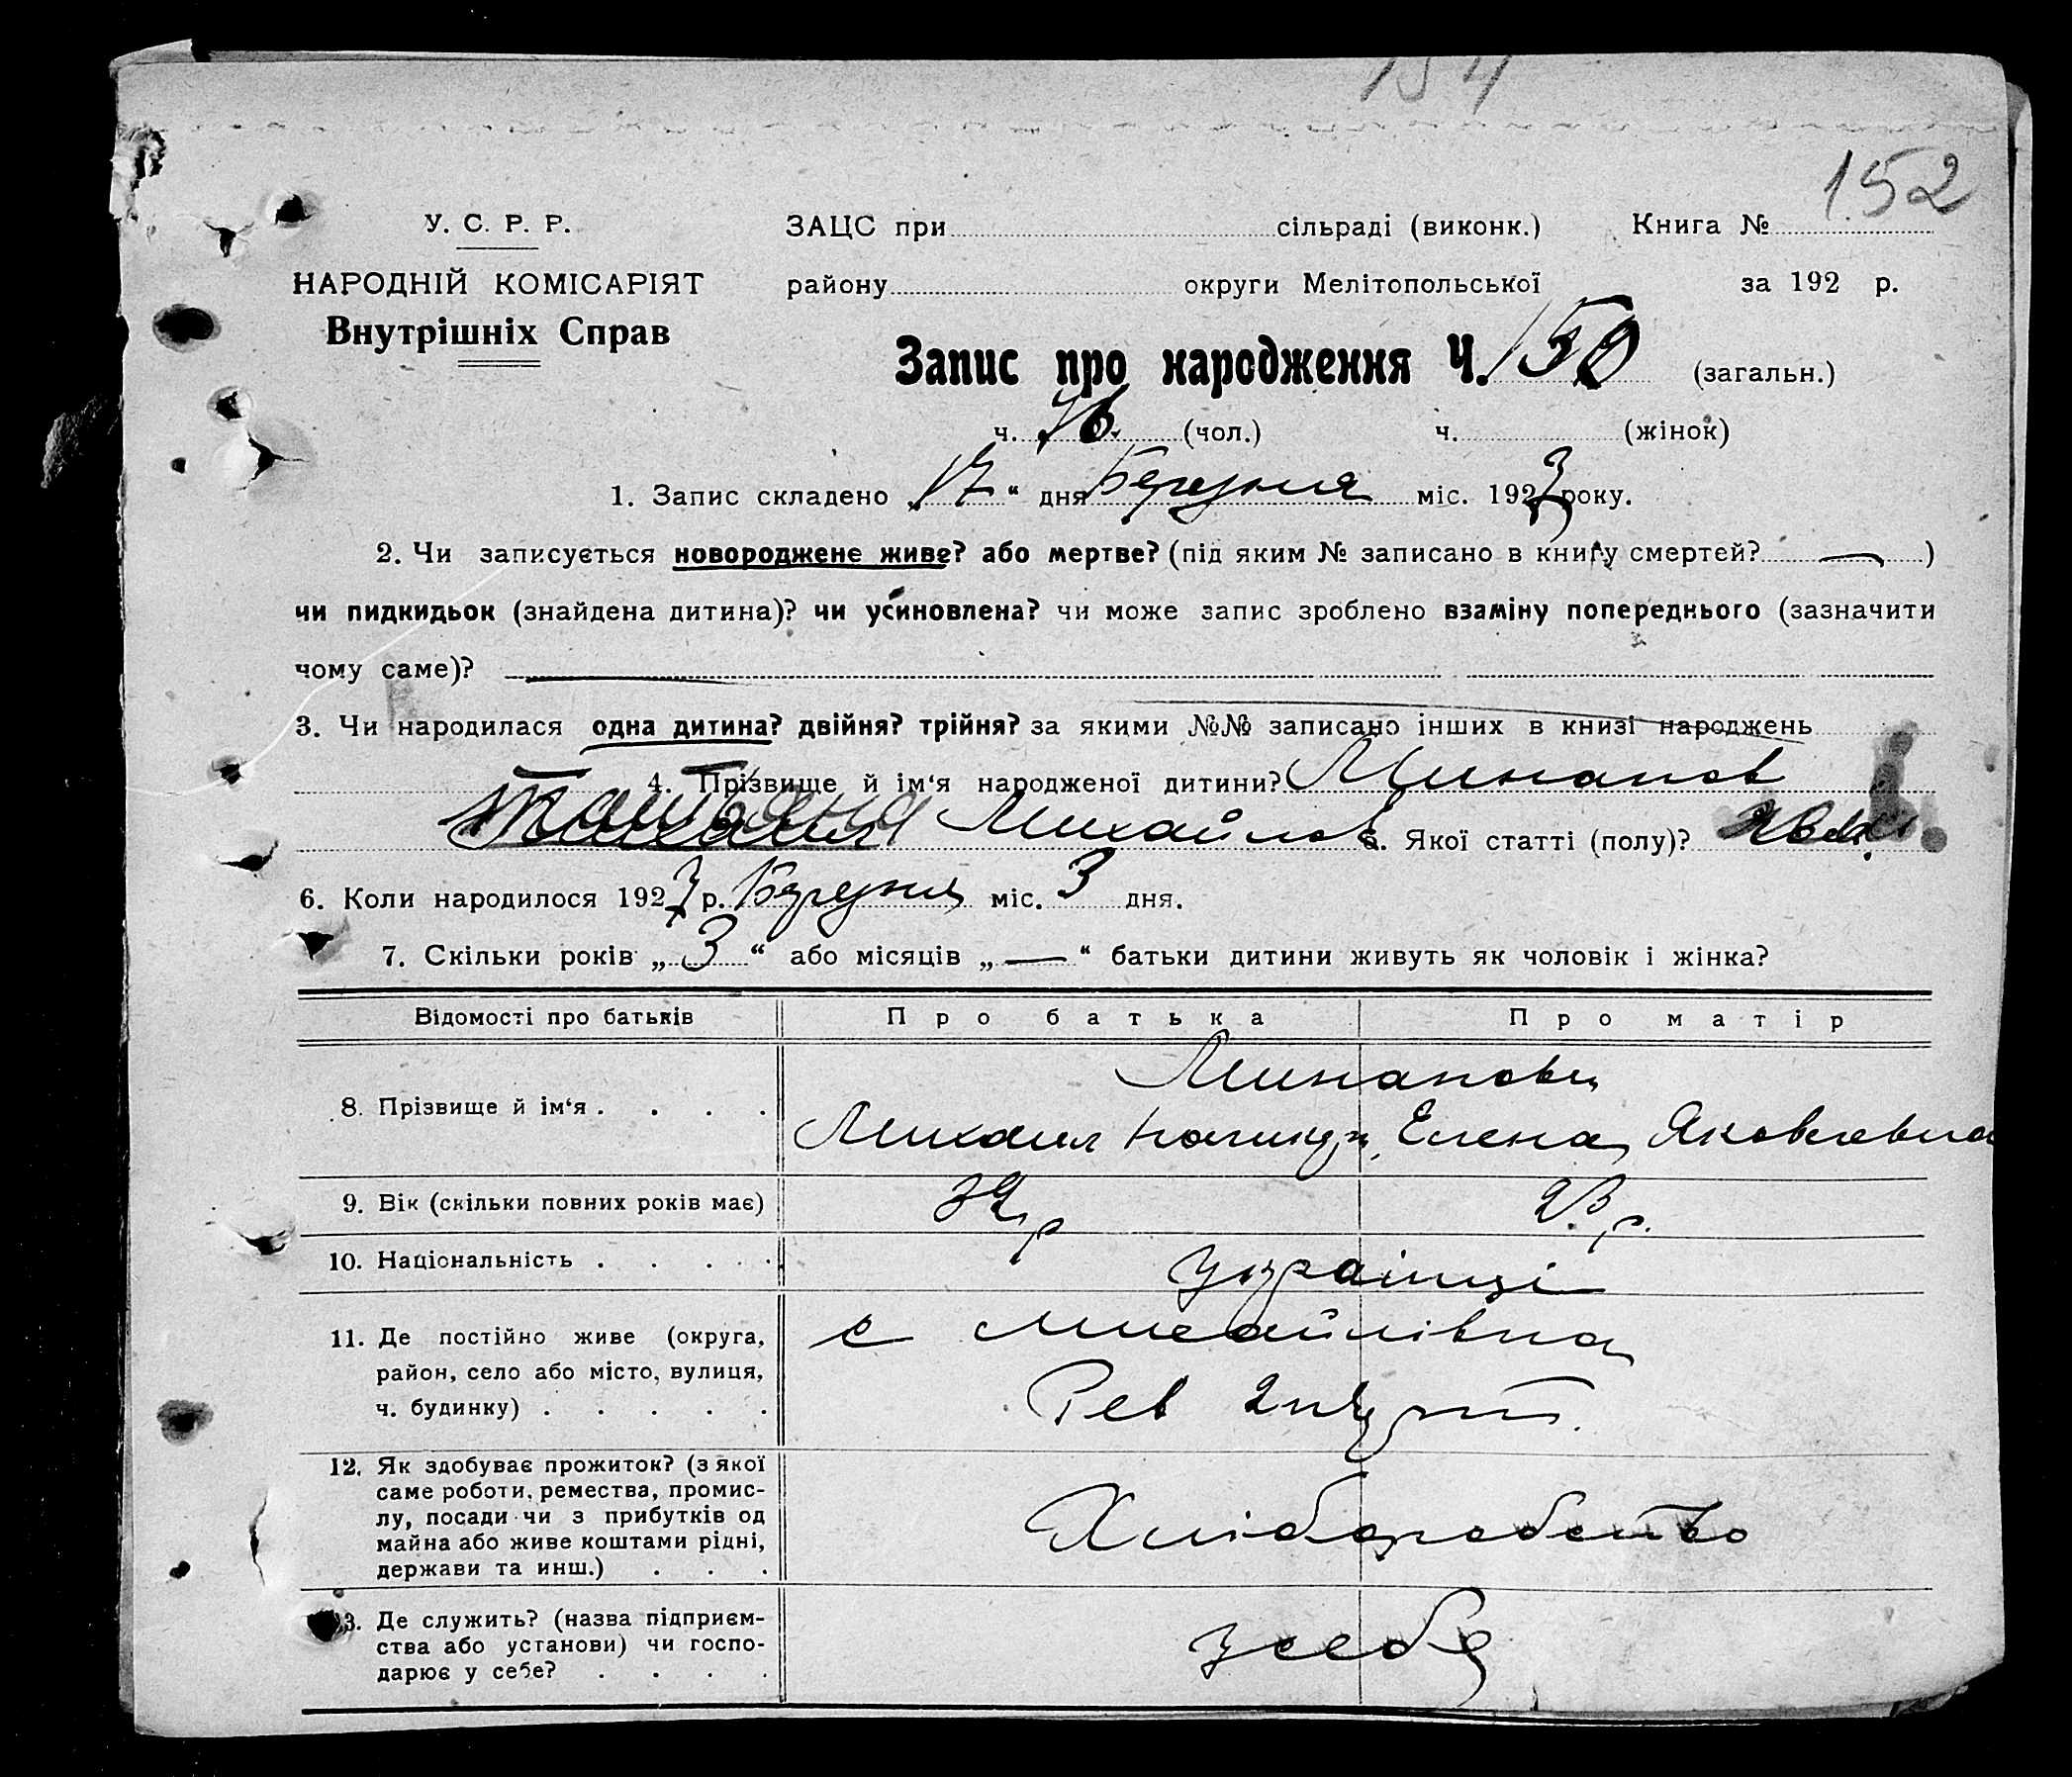 154
152
У. С. Р. Р.
ЗАЦС при сільраді (виконк.) Книга №
НАРОДНІЙ КОМІСАРІЯТ
району округи Мелітопольської за 192 р.
Внутрішніх Справ
Запис про народження Ч. 150 (загальн.)
ч. 76 (чол.) ч. (жінок)
1. Запис складено „17“ дня Березня міс. 1927 року.
2. Чи записується новороджене живе? або мертве? (під яким № записано в книгу смертей? — )
чи пидкидьок (знайдена дитина)? чи усиновлена? чи може запис зроблено взаміну попереднього (зазначити
чому саме)?
3. Чи народилася одна дитина? двійня? трійня? за якими №№ записано інших в книзі народжень
4. Прізвище й ім‘я народженої дитини? Минапов
Татьяна Михайлов 5. Якої статті (полу)?
6. Коли народилося 1927 р. Березня міс. 3 дня.
7. Скільки років „3“ або місяців „—“ батьки дитини живуть як чоловік і жінка?
Відомості про батьків Про батька Про матір
Минапови
8. Прізвище й ім‘я . . . . Михаил Елена Яковлевна
9. Вік (скільки повних років має) р 23 р.
10. Національність . . . . . Українці
11. Де постійно живе (округа, с Михайлівка
район, село або місто, вулиця,
ч. будинку) . . . . . Рев
12. Як здобуває прожиток? (з якої
саме роботи, ремества, промис-
лу, посади чи з прибутків од Хліборобство
майна або живе коштами рідні,
держави та инш.) . . .
13. Де служить? (назва підприєм-
ства або установи) чи госпо- у себе
дарює у себе? . . . .